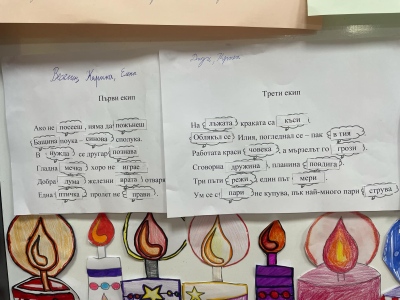 Първи екип
Ако не посееш, няма да пожънеш
Бащина поука – синова сполука.
В нужда се другар познава
Гладна мечка хоро не играе.
Добра дума железни врата отваря
Една птичка пролет не прави.
Трети екип
На лъжата краката са къси.
Облякъл се Илия, погледнал се – пак в тия
Работата краси човека, а мързелът го грози.
Сговорна дружина, планина повдига.
Три пъти режи един път мери.
Ум се с пари не купува, пък най-много пари струва